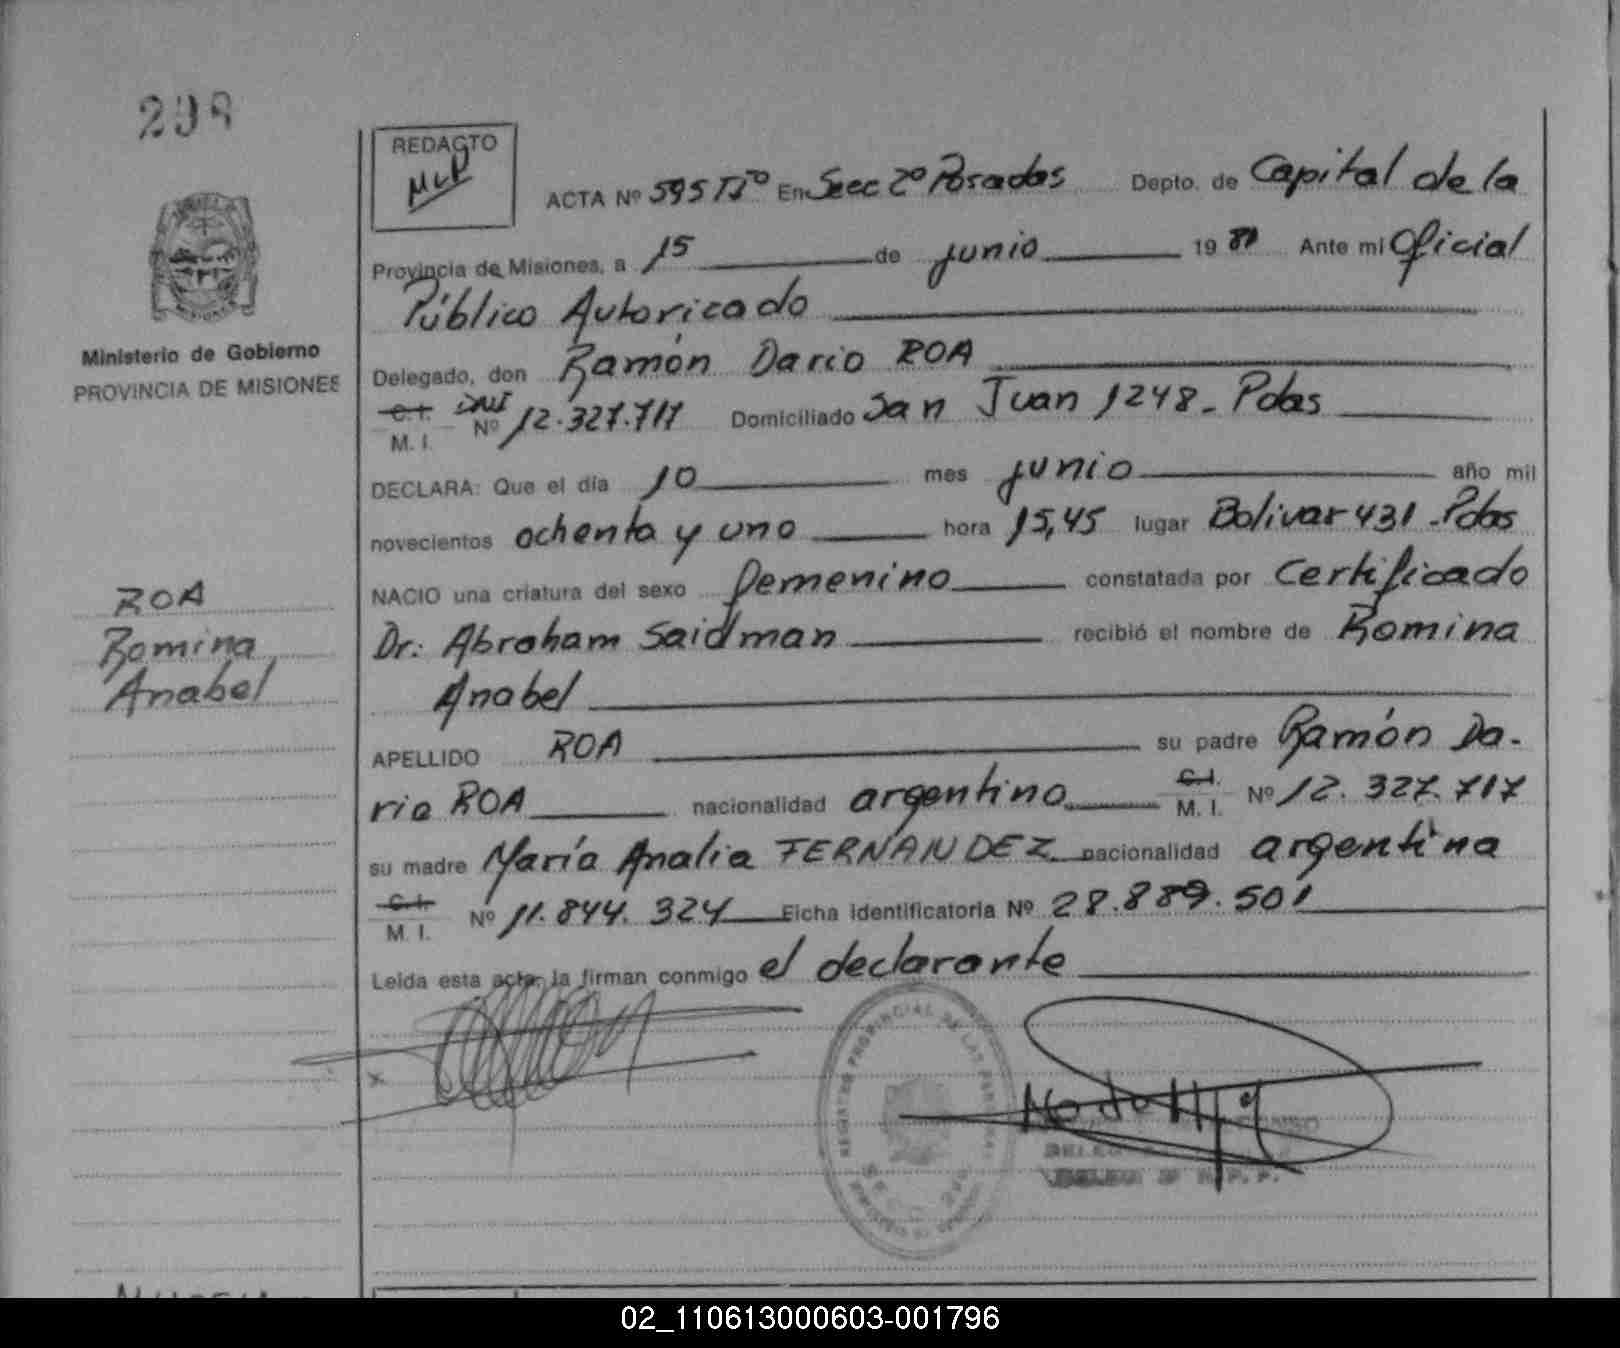 298
REDACTO
ACTA Nº 595 Tº En Secc 2º Posadas Depto. de Capital de la
Provincia de Misiones, a 15 de junio 19 81 Ante mi Oficial
Público Autoricado
Delegado, don Ramón Dario ROA
C.I. DNI
M. I. Nº 12.327.717 Domiciliado San Juan 1248- Pdas
DECLARA: Que el día 10 mes junio año mil
novecientos ochenta y uno hora 15,45 lugar Bolivar 431 - Pdas
NACIO una criatura del sexo femenino constatada por Certificado
Dr: Abraham Saidman recibió el nombre de Romina
Anabel
APELLIDO ROA su padre Ramón Da-
rio ROA nacionalidad argentino C.I. M. I. Nº 12.327.717
su madre María Analia FERNANDEZ nacionalidad argentina
C.I. M. I. Nº 11.844.324 Ficha identificatoria Nº 28.889.501
Leída esta acta, la firman conmigo el declarante
Ministerio de Gobierno
PROVINCIA DE MISIONES
ROA
Romina
Anabel
REGISTRO PROVINCIAL DE LAS PERSONAS
02_110613000603-001796